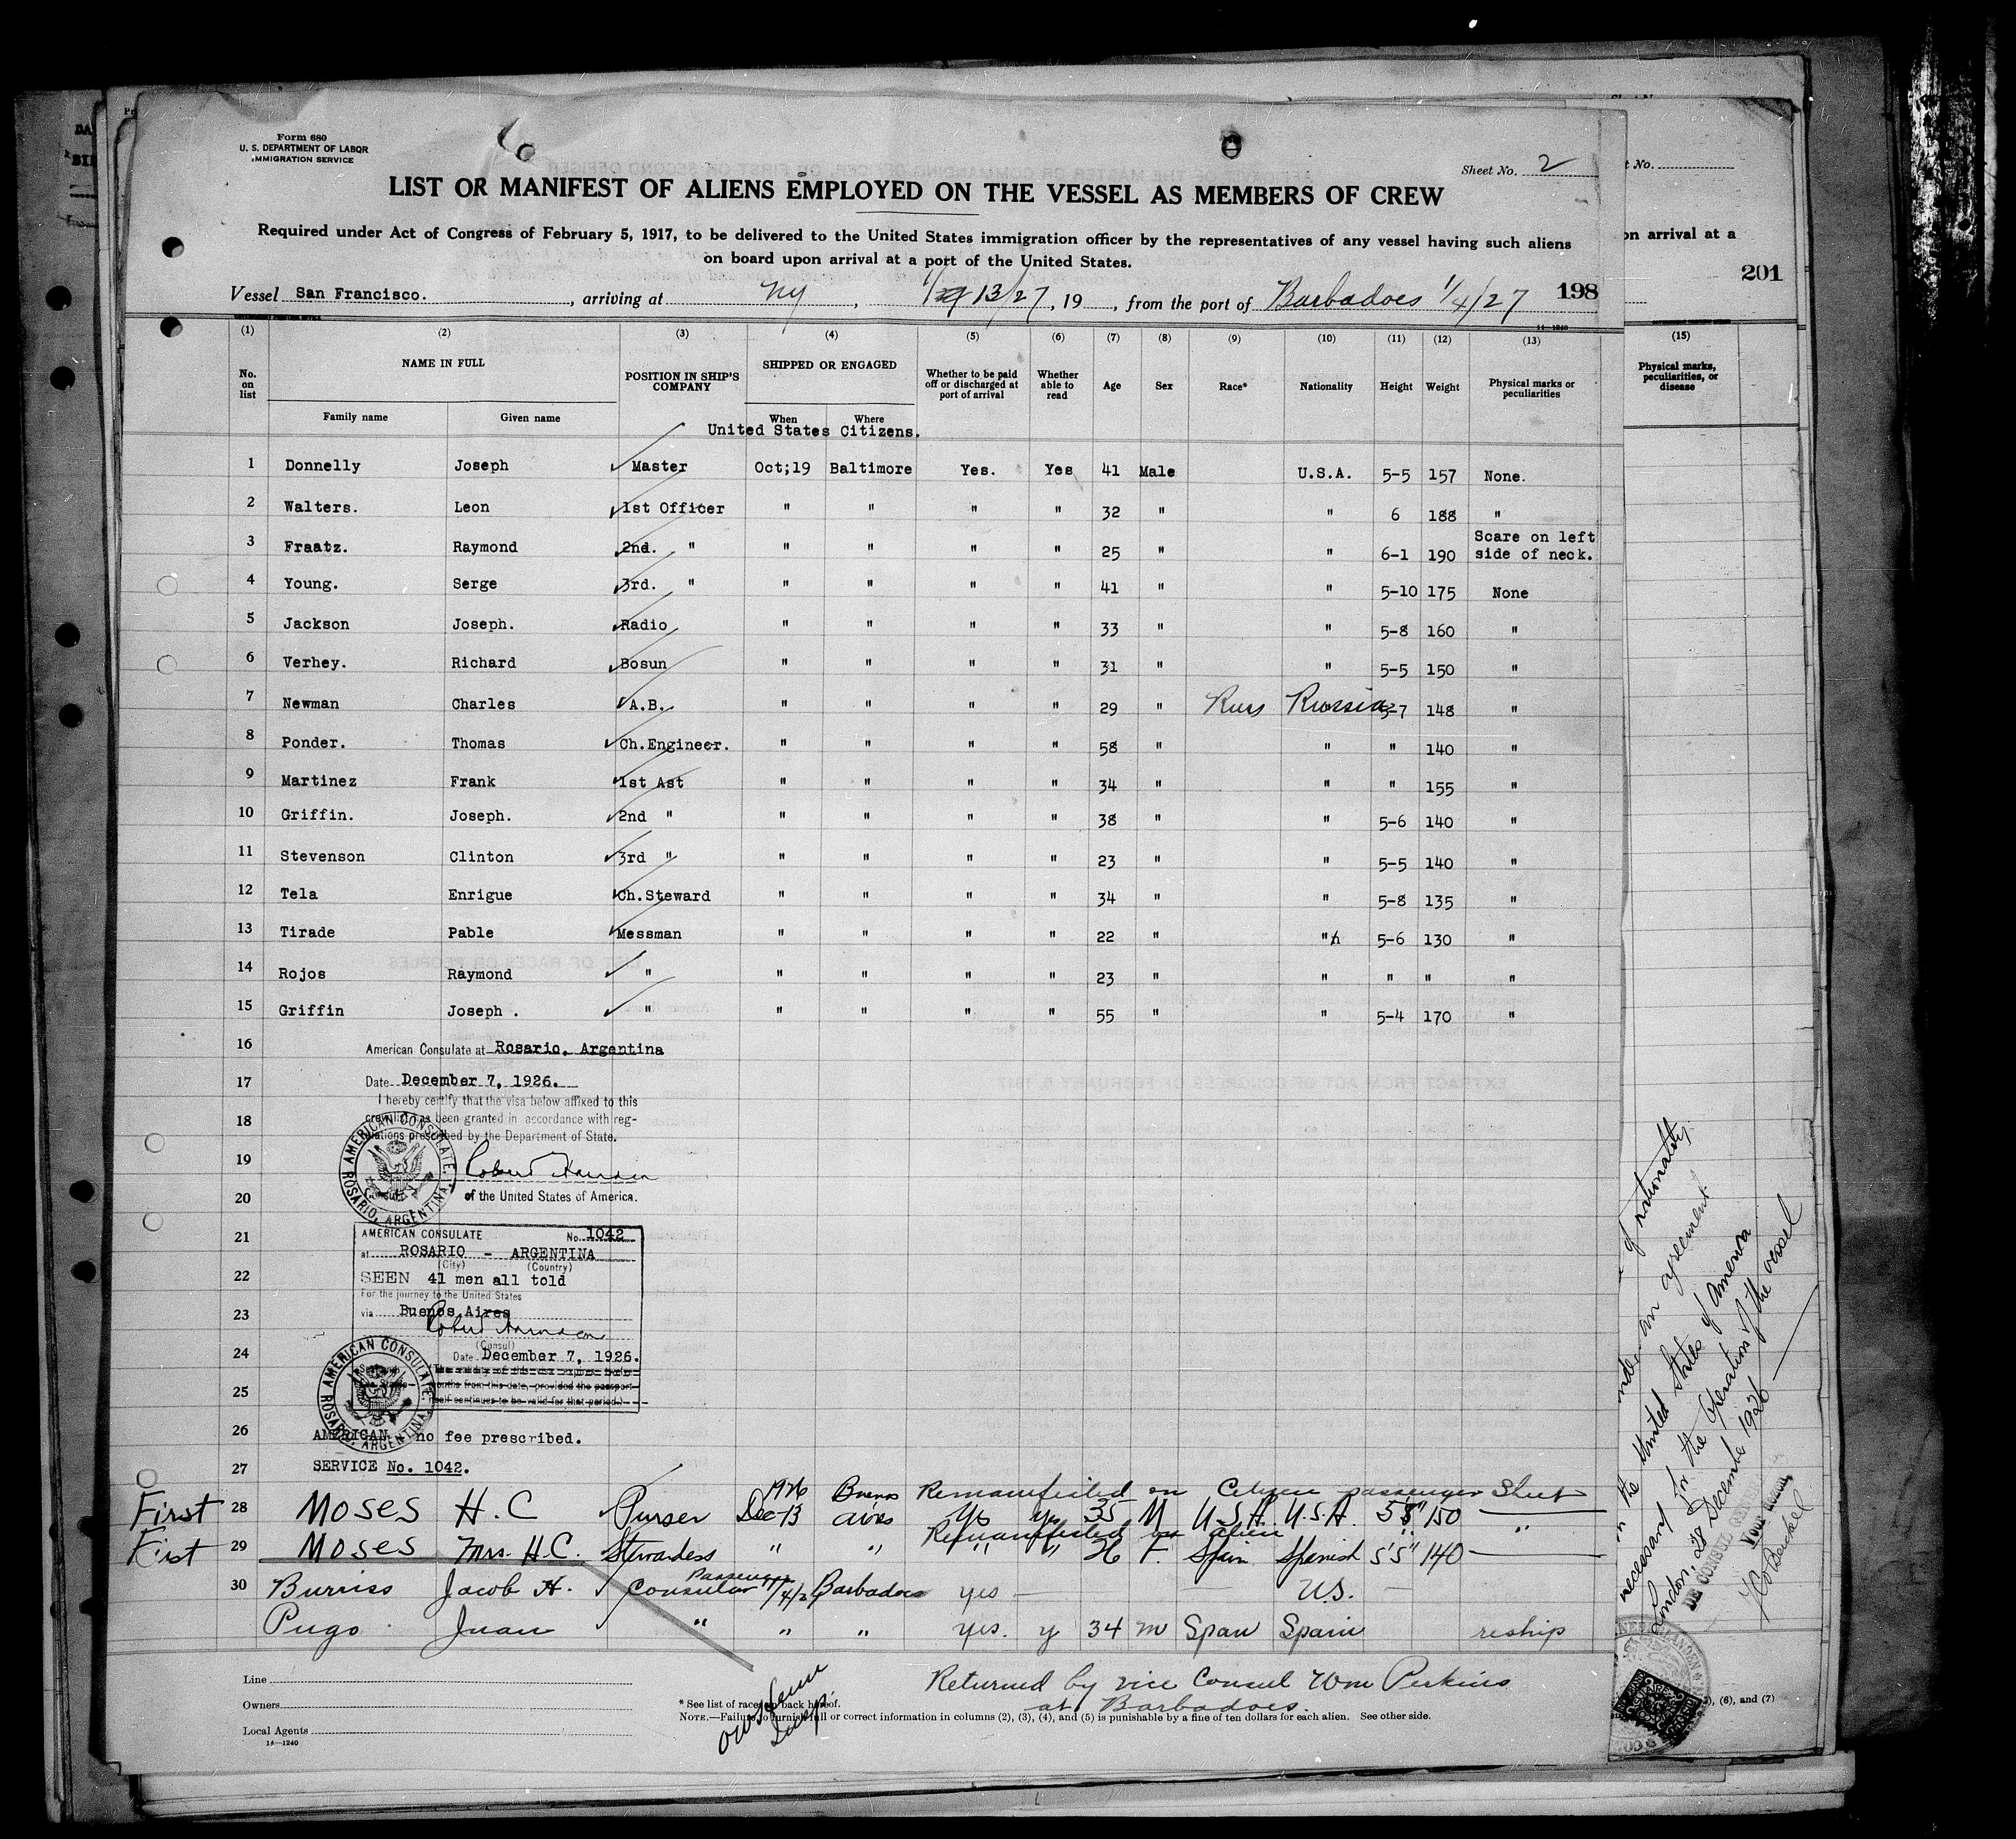 Form 680
U. S. DEPARTMENT OF LABOR
IMMIGRATION SERVICE
Sheet No. 2
LIST OR MANIFEST OF ALIENS EMPLOYED ON THE VESSEL AS MEMBERS OF CREW
Required under Act of Congress of February 5, 1917, to be delivered to the United States immigration officer by the representatives of any vessel having such aliens
on board upon arrival at a port of the United States.
Vessel San Francisco. , arriving at NY , 1/13/27, 19 , from the port of Barbadoes 1/4/27 198
14—1240
(1) (2) (3) (4) (5) (6) (7) (8) (9) (10) (11) (12) (13)
No. on list NAME IN FULL POSITION IN SHIP'S COMPANY SHIPPED OR ENGAGED Whether to be paid off or discharged at port of arrival Whether able to read Age Sex Race* Nationality Height Weight Physical marks or peculiarities
Family name Given name When Where
United States Citizens.
1 Donnelly Joseph Master Oct;19 Baltimore Yes. Yes 41 Male U.S.A. 5-5 157 None.
2 Walters. Leon 1st Officer " " " " 32 " " 6 188 "
3 Fraatz. Raymond 2nd. " " " " " 25 " " 6-1 190 Scare on left side of neck.
4 Young. Serge 3rd. " " " " " 41 " " 5-10 175 None
5 Jackson Joseph. Radio " " " " 33 " " 5-8 160 "
6 Verhey. Richard Bosun " " " " 31 " " 5-5 150 "
7 Newman Charles A.B. " " " " 29 " Russ Russia 5-7 148 "
8 Ponder. Thomas Ch.Engineer. " " " " 58 " " " 140 "
9 Martinez Frank 1st Ast " " " " 34 " " " 155 "
10 Griffin. Joseph. 2nd " " " " " 38 " " 5-6 140 "
11 Stevenson Clinton 3rd " " " " " 23 " " 5-5 140 "
12 Tela Enrigue Ch.Steward " " " " 34 " " 5-8 135 "
13 Tirade Pable Messman " " " " 22 " " 5-6 130 "
14 Rojos Raymond " " " " " 23 " " " " "
15 Griffin Joseph . " " " " " 55 " " 5-4 170 "
16 American Consulate at Rosario, Argentina
17 Date December 7, 1926.
I hereby certify that the visa below affixed to this
18 crew list has been granted in accordance with reg-
ulations prescribed by the Department of State.
AMERICAN CONSULATE. ROSARIO, ARGENTINA.
19 Robert Harnden
20 of the United States of America.
21 AMERICAN CONSULATE No. 1042
at ROSARIO - ARGENTINA
(City) (Country)
22 SEEN 41 men all told
For the journey to the United States
23 via Buenos Aires
Robert Harnden
(Consul)
24 Date December 7, 1926.
AMERICAN CONSULATE. ROSARIO, ARGENTINA.
(The validity of this visa expires
months from this date, provided the passport
25 itself continues to be valid for that period.)
26 AMERICAN no fee prescribed.
27 SERVICE No. 1042.
1926 Buenos Remanifested on Citizen passenger Sheet
First 28 Moses H. C Purser Dec 13 aires Yes Ys 35 M U.S.A. U.S.A. 5'8" 150
Remanifested as alien
First 29 Moses Mrs. H.C. Stewardess " " " " 26 F. Spain Spanish 5'5" 140 "
30 Burriss Jacob H. Consular Passenger 1/4/27 Barbadoes yes U.S.
Pugo Juan " " " yes. y 34 m Span Spain reship
Line
Owners
Local Agents
14—1240
Returned by vice Consul Wm Perkins
at Barbadoes.
* See list of races on back hereof.
NOTE.—Failure to furnish full or correct information in columns (2), (3), (4), and (5) is punishable by a fine of ten dollars for each alien. See other side.
t No.
on arrival at a
201
(15)
Physical marks, peculiarities, or disease
of nationality
under an agreement
in the United States of America
necessary for the Operation of the vessel
London, 28 December 1926
), (6), and (7)